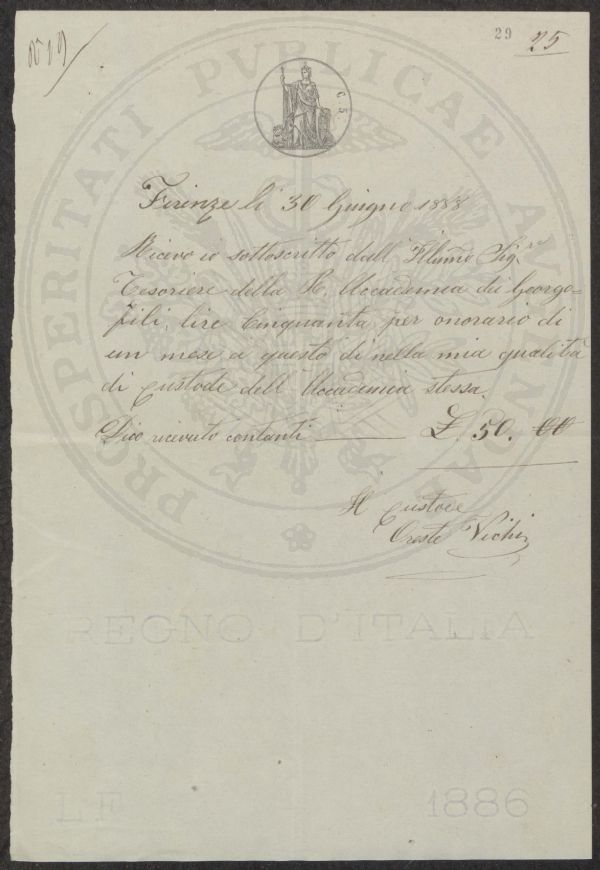 N° 19
29
25
C. 5
PROSPERITATI PVBLICAE AVGENDAE
Firenze li 30 Giugno 1888
Ricevo io sottoscritto dall' Illmo Sigr
Tesoriere della R. Accademia dei Georgo=
fili, lire Cinquanta per onorario di
un mese a questo dì nella mia qualità
di custode dell' Accademia stessa.
Dico ricevuto contanti £ 50. 00
Il Custode
Oreste Vichi
REGNO D'ITALIA
L F 1886